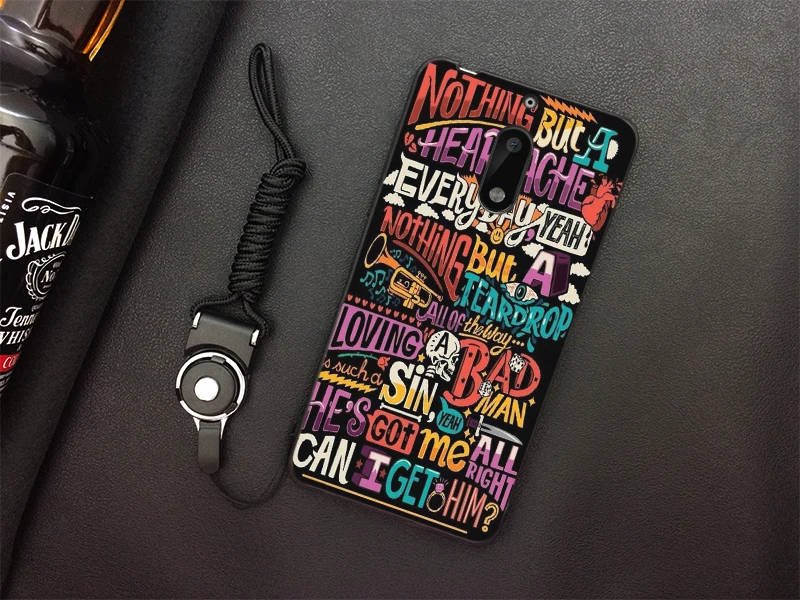 NOTHING BUT A
HEAR ACHE
EVERYDAY, YEAH
NOTHING BUT A
TEARDROP
ALL OF the way...
LOVING A BAD
MAN
is such a SIN, YEAH
HE'S GOT me ALL
RIGHT
CAN I GET HIM?
VISIT
JACK D
Tenn
WHIS